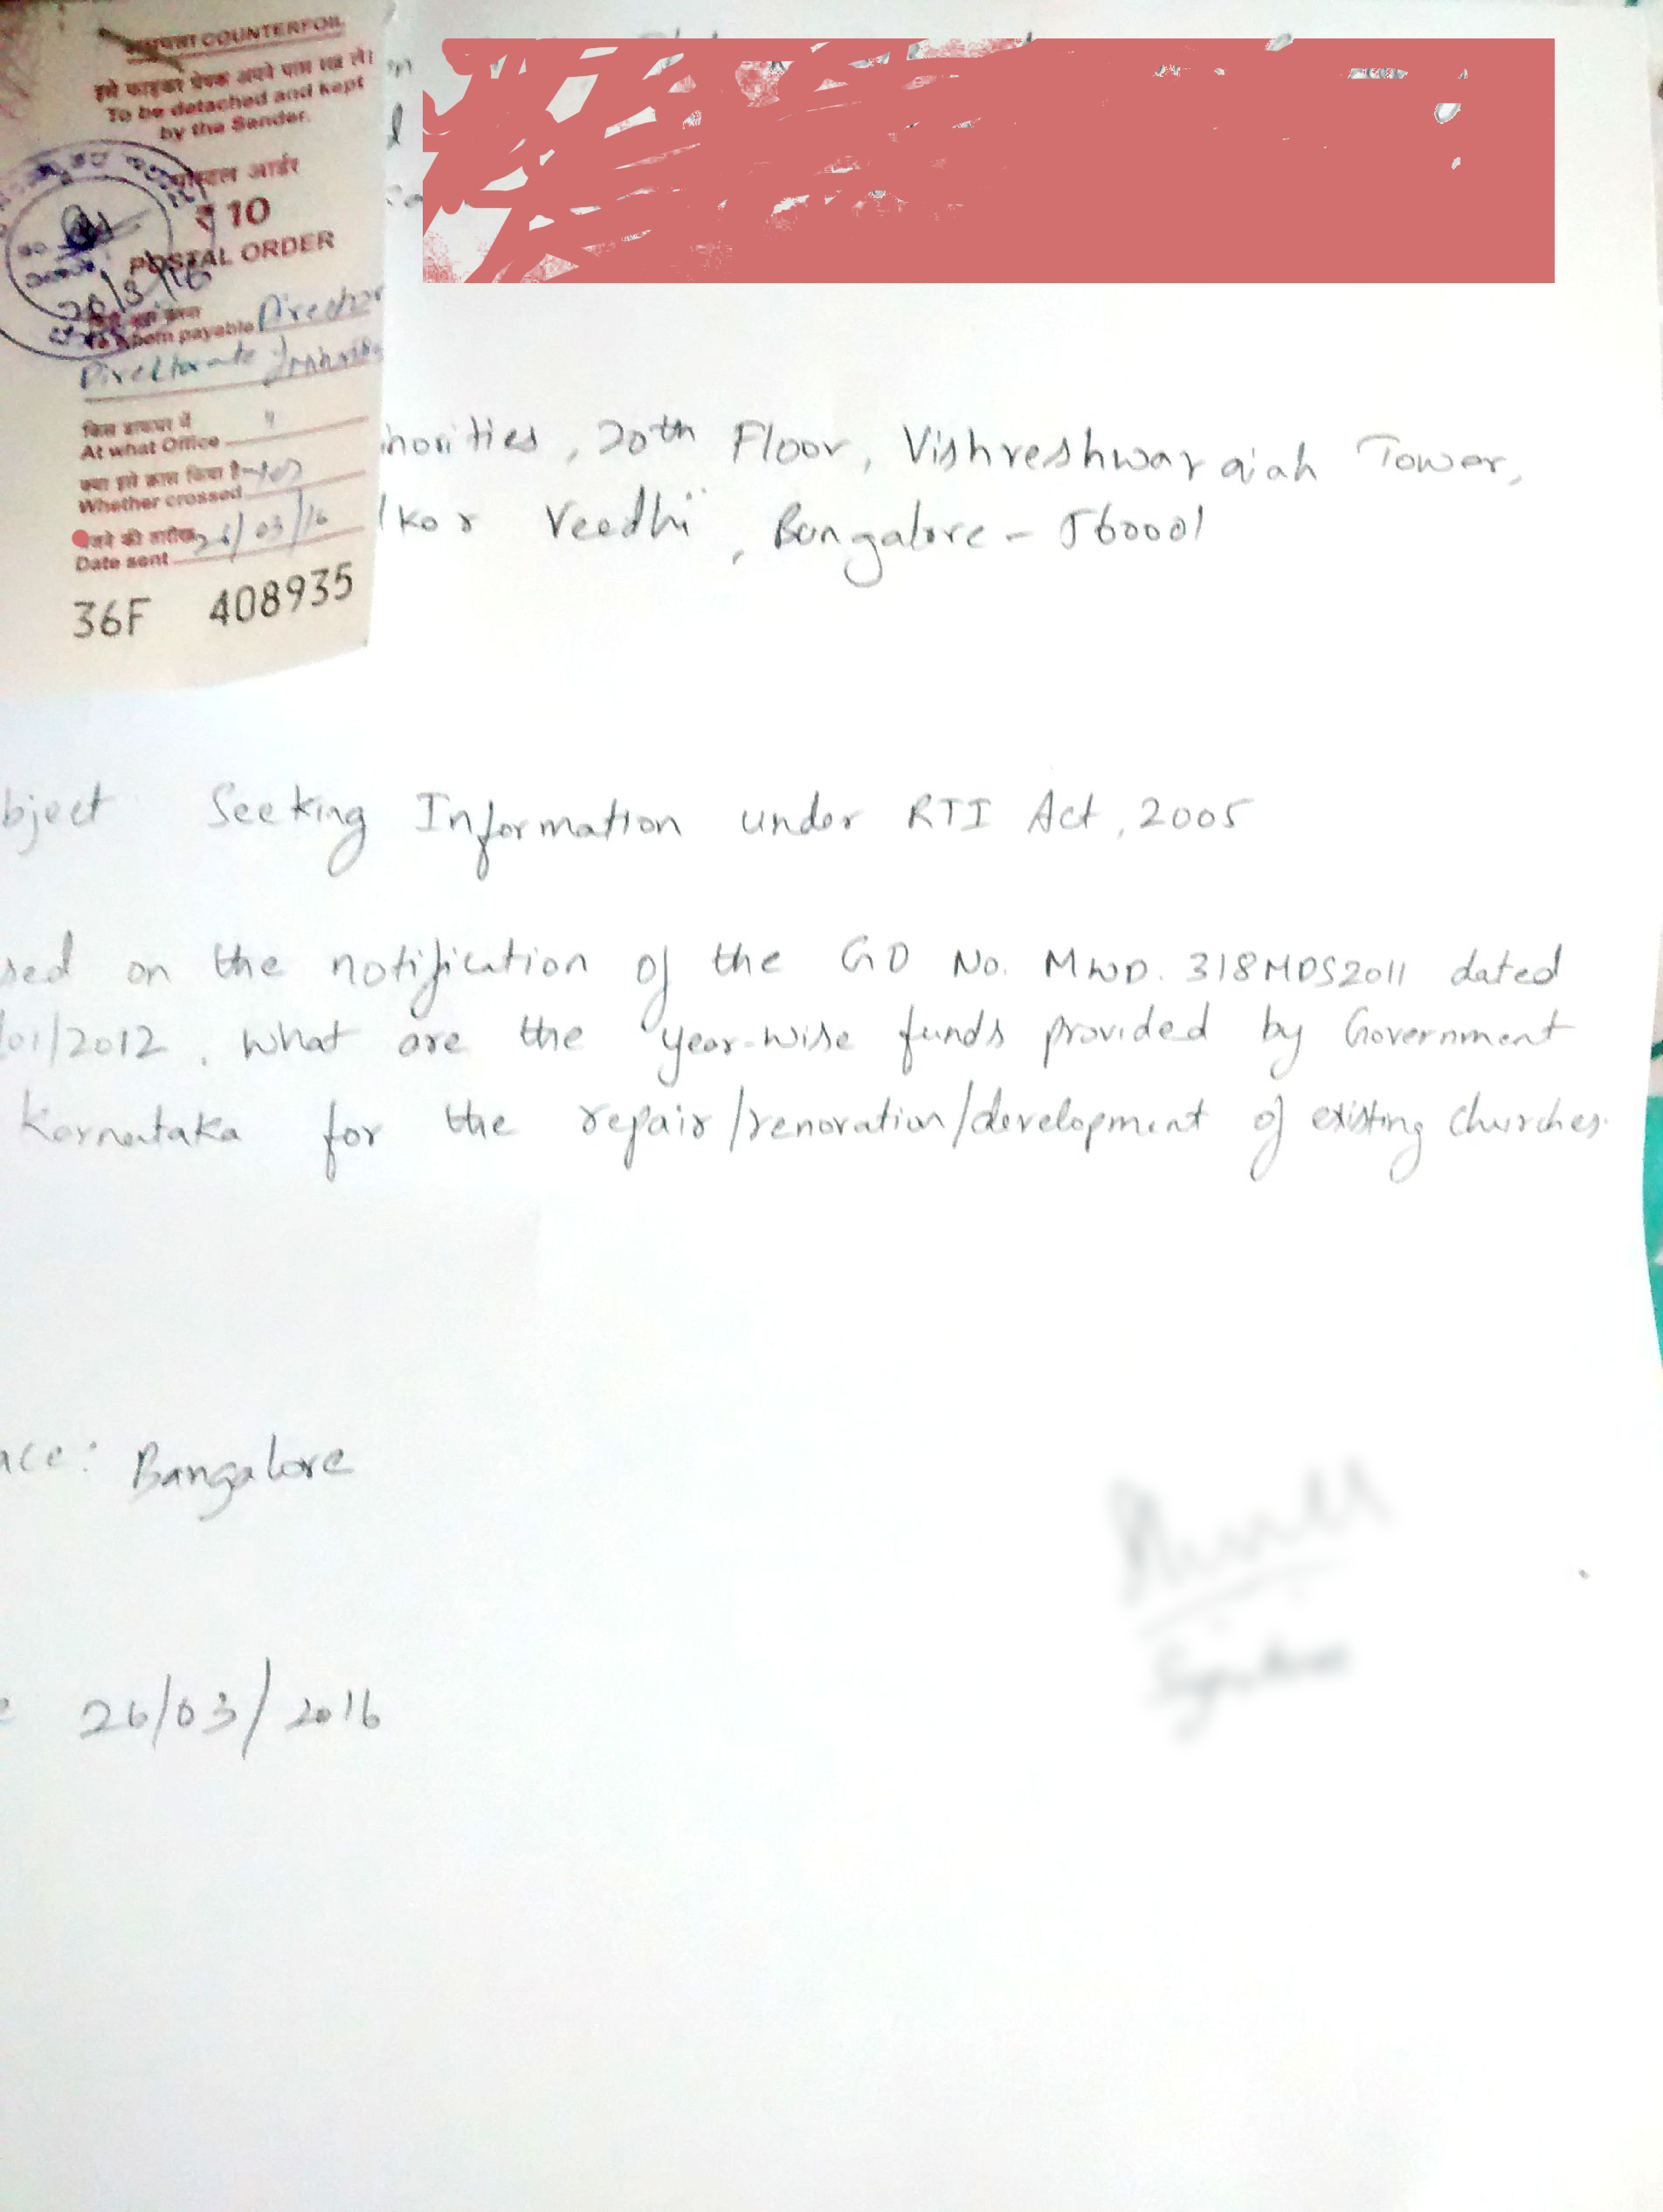 COUNTERFOIL
इसे फाड़कर प्रेषक अपने पास रख लें।
To be detached and kept
by the Sender.
पोस्टल आर्डर
₹ 10
POSTAL ORDER
26/3/16
To whom payable Director
Directorate
किस डाकघर में
At what Office
क्या इसे क्रास किया है
Whether crossed
भेजने की तारीख
Date sent 26/03/16
36F 408935
horities, 20th Floor, Vishreshwaraiah Tower,
lkor Veedhi, Bangalore - 560001
bject Seeking Information under RTI Act, 2005
sed on the notification of the GO No. MWD. 318MDS2011 dated
/01/2012, what are the year-wise funds provided by Government
Karnataka for the repair/renovation/development of existing churches.
ace: Bangalore
26/03/2016